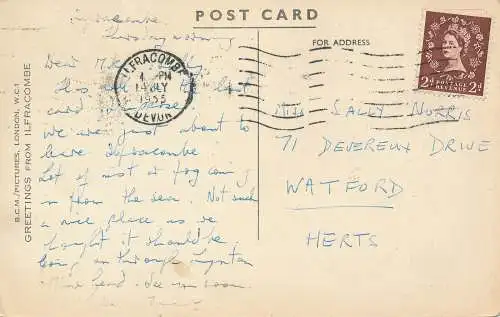 POST CARD
FOR ADDRESS
Ilfracombe
Thursday morning
Dear
the last
card
we are just about to
leave Ilfracombe
Lot of mist & fog coming
in from the sea. Not such
a nice place as we
thought it should be
Going on through Lynton
Minehead. See you soon.
ILFRACOMBE
PM
JLY
1955
DEVON
POSTAGE
REVENUE
2d 2d
MISS SALLY NORRIS
71 DEVEREUX DRIVE
WATFORD
HERTS
B.C.M./PICTURES, LONDON, W.C.1
GREETINGS FROM ILFRACOMBE